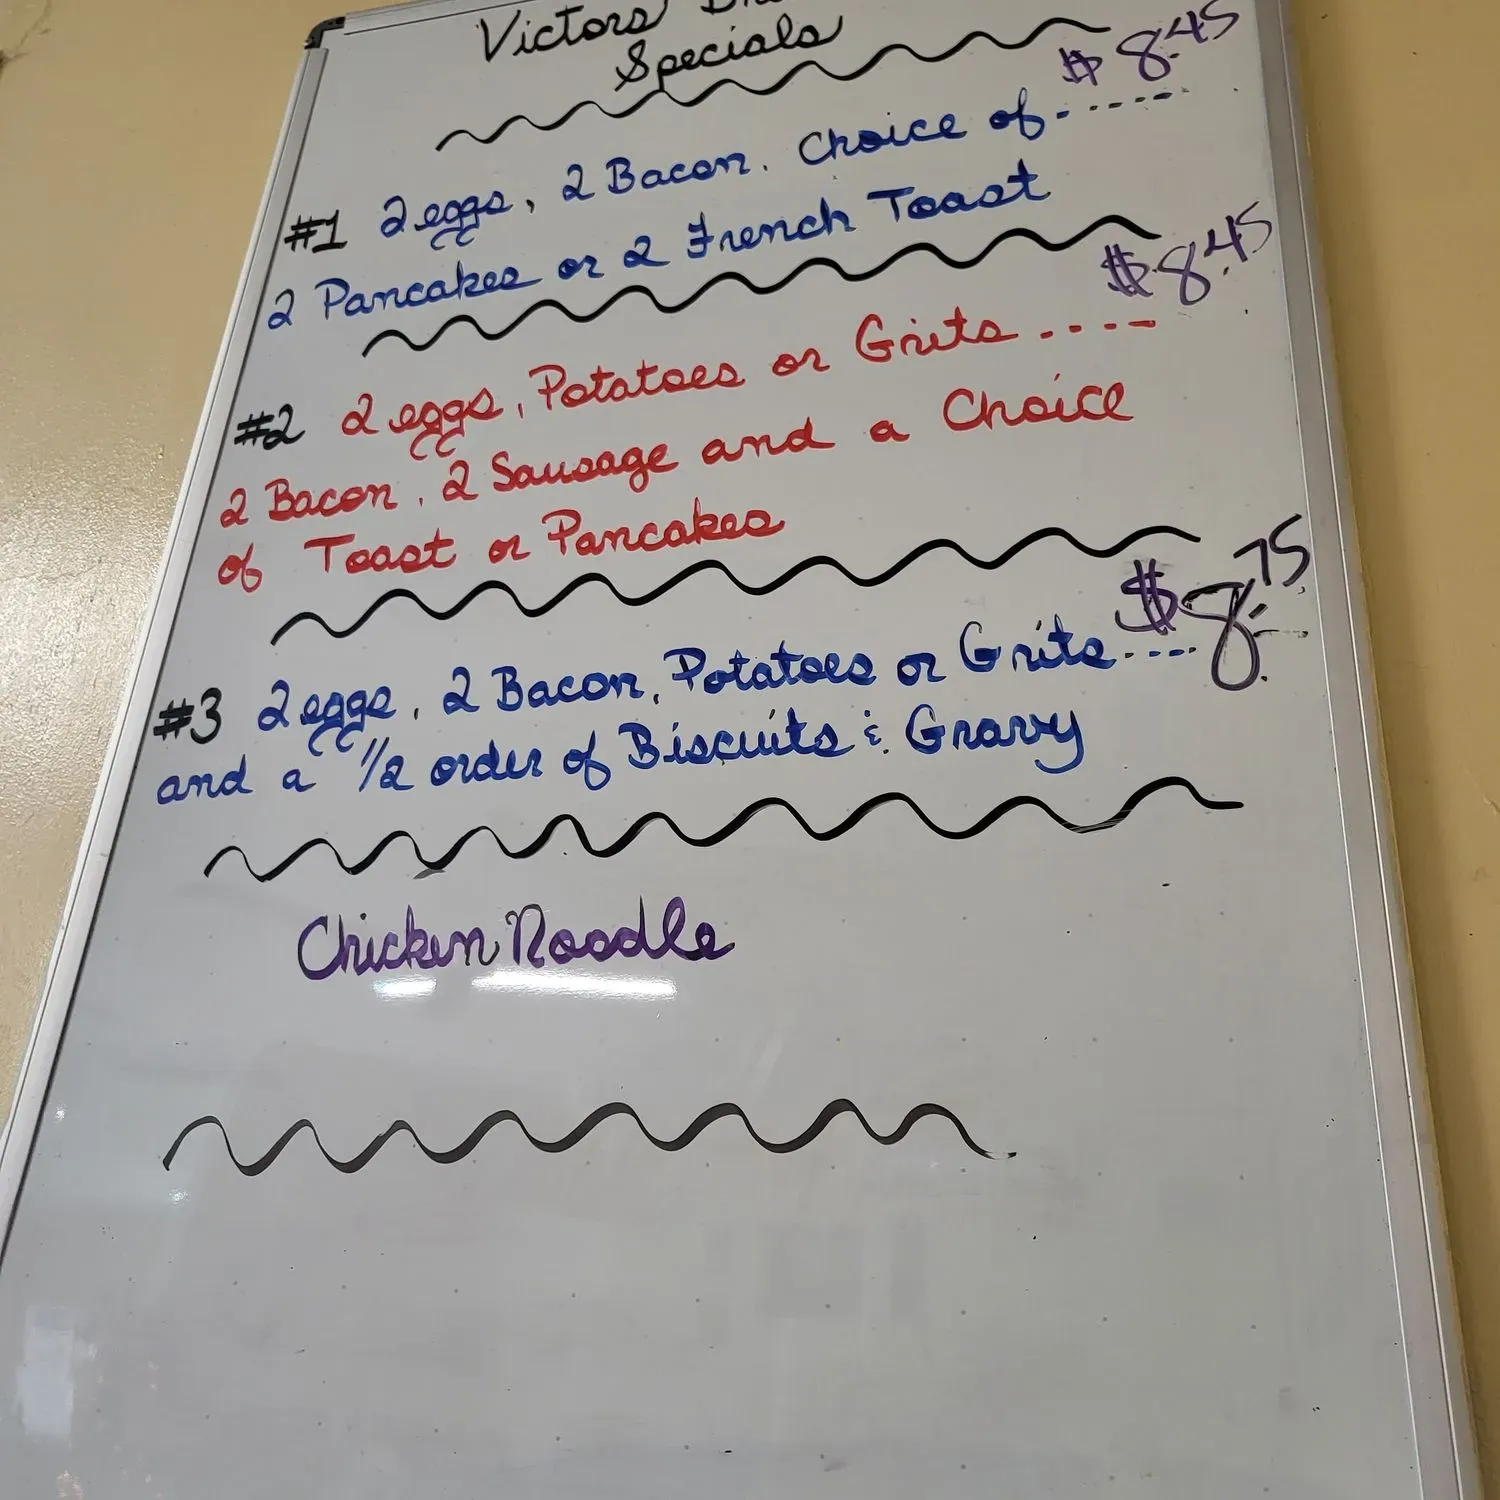 Victors
Specials
$8.45
#1 2 eggs, 2 Bacon. Choice of------
2 Pancakes or 2 French Toast
$8.45
#2 2 eggs, Potatoes or Grits ----
2 Bacon, 2 Sausage and a Choice
of Toast or Pancakes
$8.75
#3 2 eggs, 2 Bacon, Potatoes or Grits----
and a 1/2 order of Biscuits & Gravy
Chicken Noodle